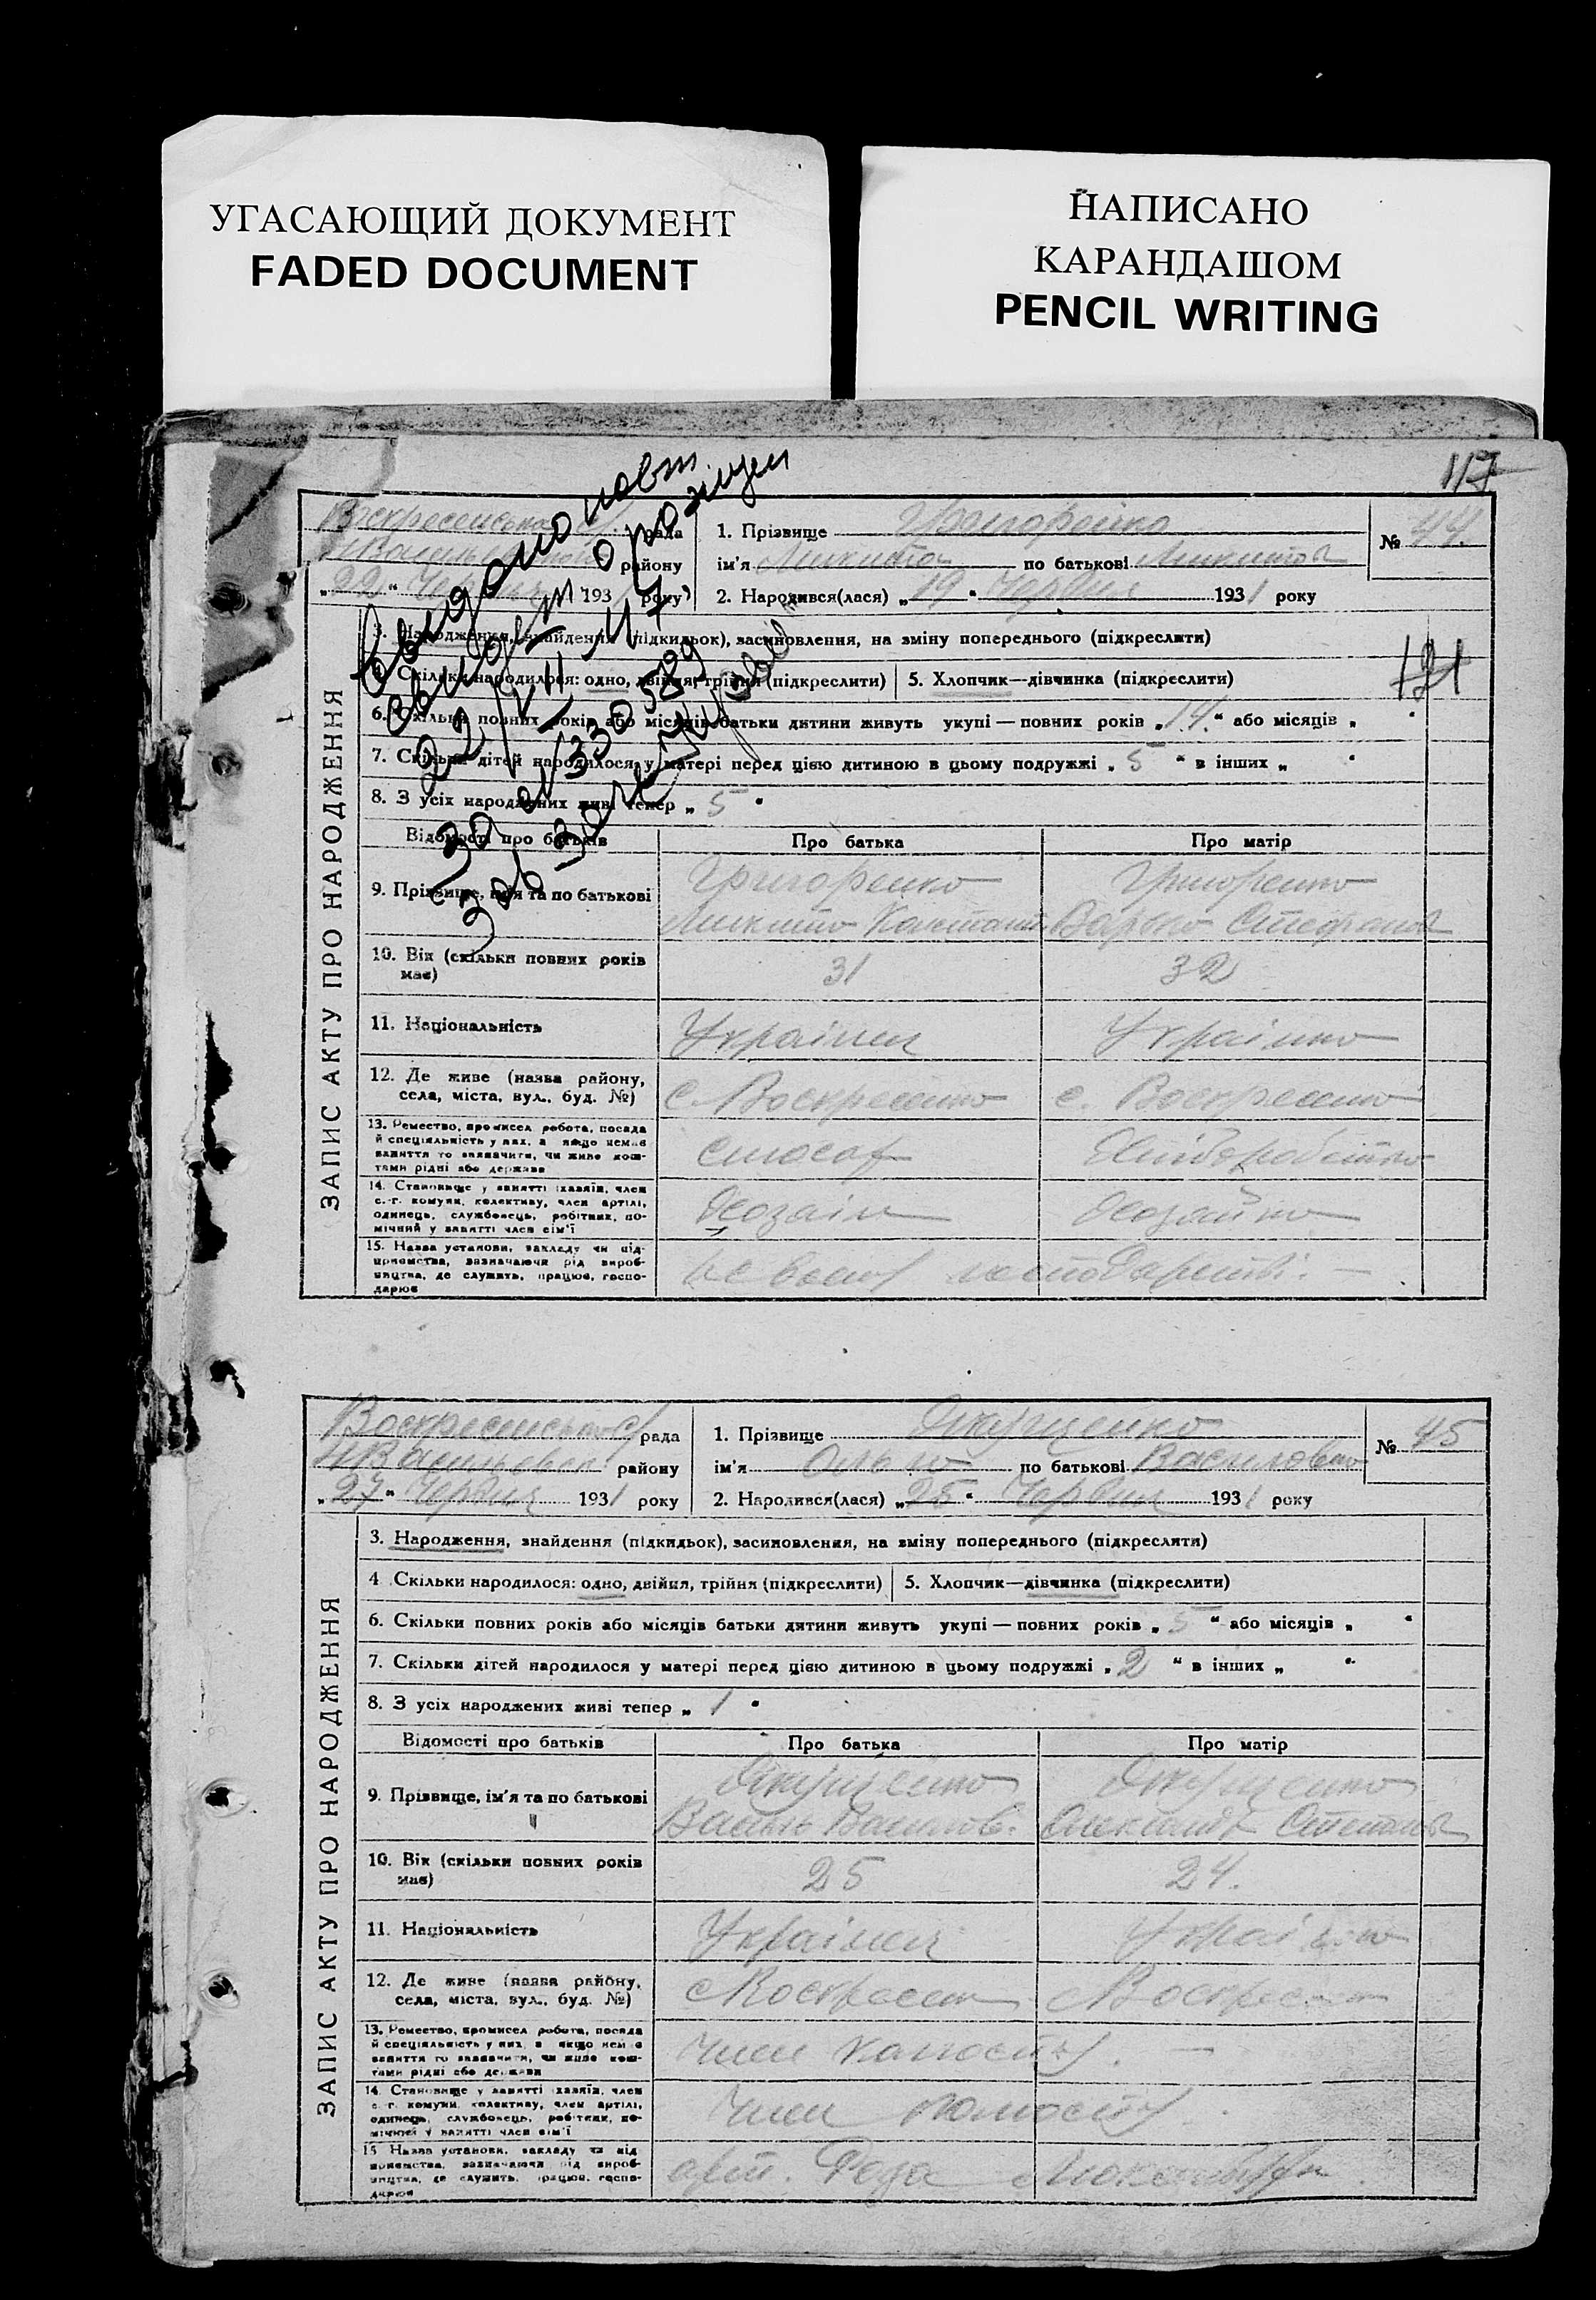 УГАСАЮЩИЙ ДОКУМЕНТ
FADED DOCUMENT
НАПИСАНО
КАРАНДАШОМ
PENCIL WRITING
117
121
ЗАПИС АКТУ ПРО НАРОДЖЕННЯ
Воскресенська с/рада
району
„22“ Червня 1931 року
1. Прізвище Григоренко
ім'я Микита по батькові Микитов
№ 44.
2. Народився(лася) „19“ Червня 1931 року
3. Народження, знайдення (підкидьок), засиновлення, на зміну попереднього (підкреслити)
4. Скільки народилося: одно, двійня, трійня (підкреслити) 5. Хлопчик—дівчинка (підкреслити)
6. Скільки повних років або місяців батьки дитини живуть укупі — повних років „14“ або місяців „ “
7. Скільки дітей народилося у матері перед цією дитиною в цьому подружжі „5“ в інших „ “
8. З усіх народжених живі тепер „5“
Відомості про батьків Про батька Про матір
9. Прізвище, ім'я та по батькові Григоренко Григоренко
Микита Констант. Варвара Стефанов
10. Вік (скільки повних років має) 31 32
11. Національність Українец Українка
12. Де живе (назва району, села, міста, вул., буд. №) с. Воскресенка с. Воскресенка
13. Ремество, промисел робота, посада й спеціяльність у них, а якщо немає заняття то зазначити, чи живе коштами рідні або держави
Слюсар
14. Становище у занятті (хазяїн, член с.-г. комуни, колективу, член артілі, одинець, службовець, робітник, помічний у занятті член сім'ї
Хозаін Хозайка
15. Назва установи, закладу чи підприємства, зазначаючи рід виробництва, де служить, працює, господарює
в своєму господарстві. —
ЗАПИС АКТУ ПРО НАРОДЖЕННЯ
Воскресенська с/рада
району
„27“ Червня 1931 року
1. Прізвище Якущенко
ім'я Ольга по батькові Василовна
№ 45
2. Народився(лася) „25“ Червня 1931 року
3. Народження, знайдення (підкидьок), засиновлення, на зміну попереднього (підкреслити)
4 Скільки народилося: одно, двійня, трійня (підкреслити) 5. Хлопчик—дівчинка (підкреслити)
6. Скільки повних років або місяців батьки дитини живуть укупі — повних років „5“ або місяців „ “
7. Скільки дітей народилося у матері перед цією дитиною в цьому подружжі „2“ в інших „ “
8. З усіх народжених живі тепер „1“
Відомості про батьків Про батька Про матір
9. Прізвище, ім'я та по батькові Якущенко Якущенко
Василь Василов. Степанов
10. Вік (скільки повних років має) 25 24.
11. Національність Українец Українка
12. Де живе (назва району, села, міста, вул., буд. №) с Воскресен с Воскресен
13. Ремество, промисел робота, посада й спеціяльність у них, а якщо немає заняття то зазначити, чи живе коштами рідні або держави
Член Колоспу. —
14. Становище у занятті (хазяїн, член с.-г. комуни, колективу, член артілі, одинець, службовець, робітник, помічний у занятті член сім'ї
Член колоспу
15 Назва установи, закладу чи підприємства, зазначаючи рід виробництва, де служить, працює, господарює
арт. Роза Люксембург